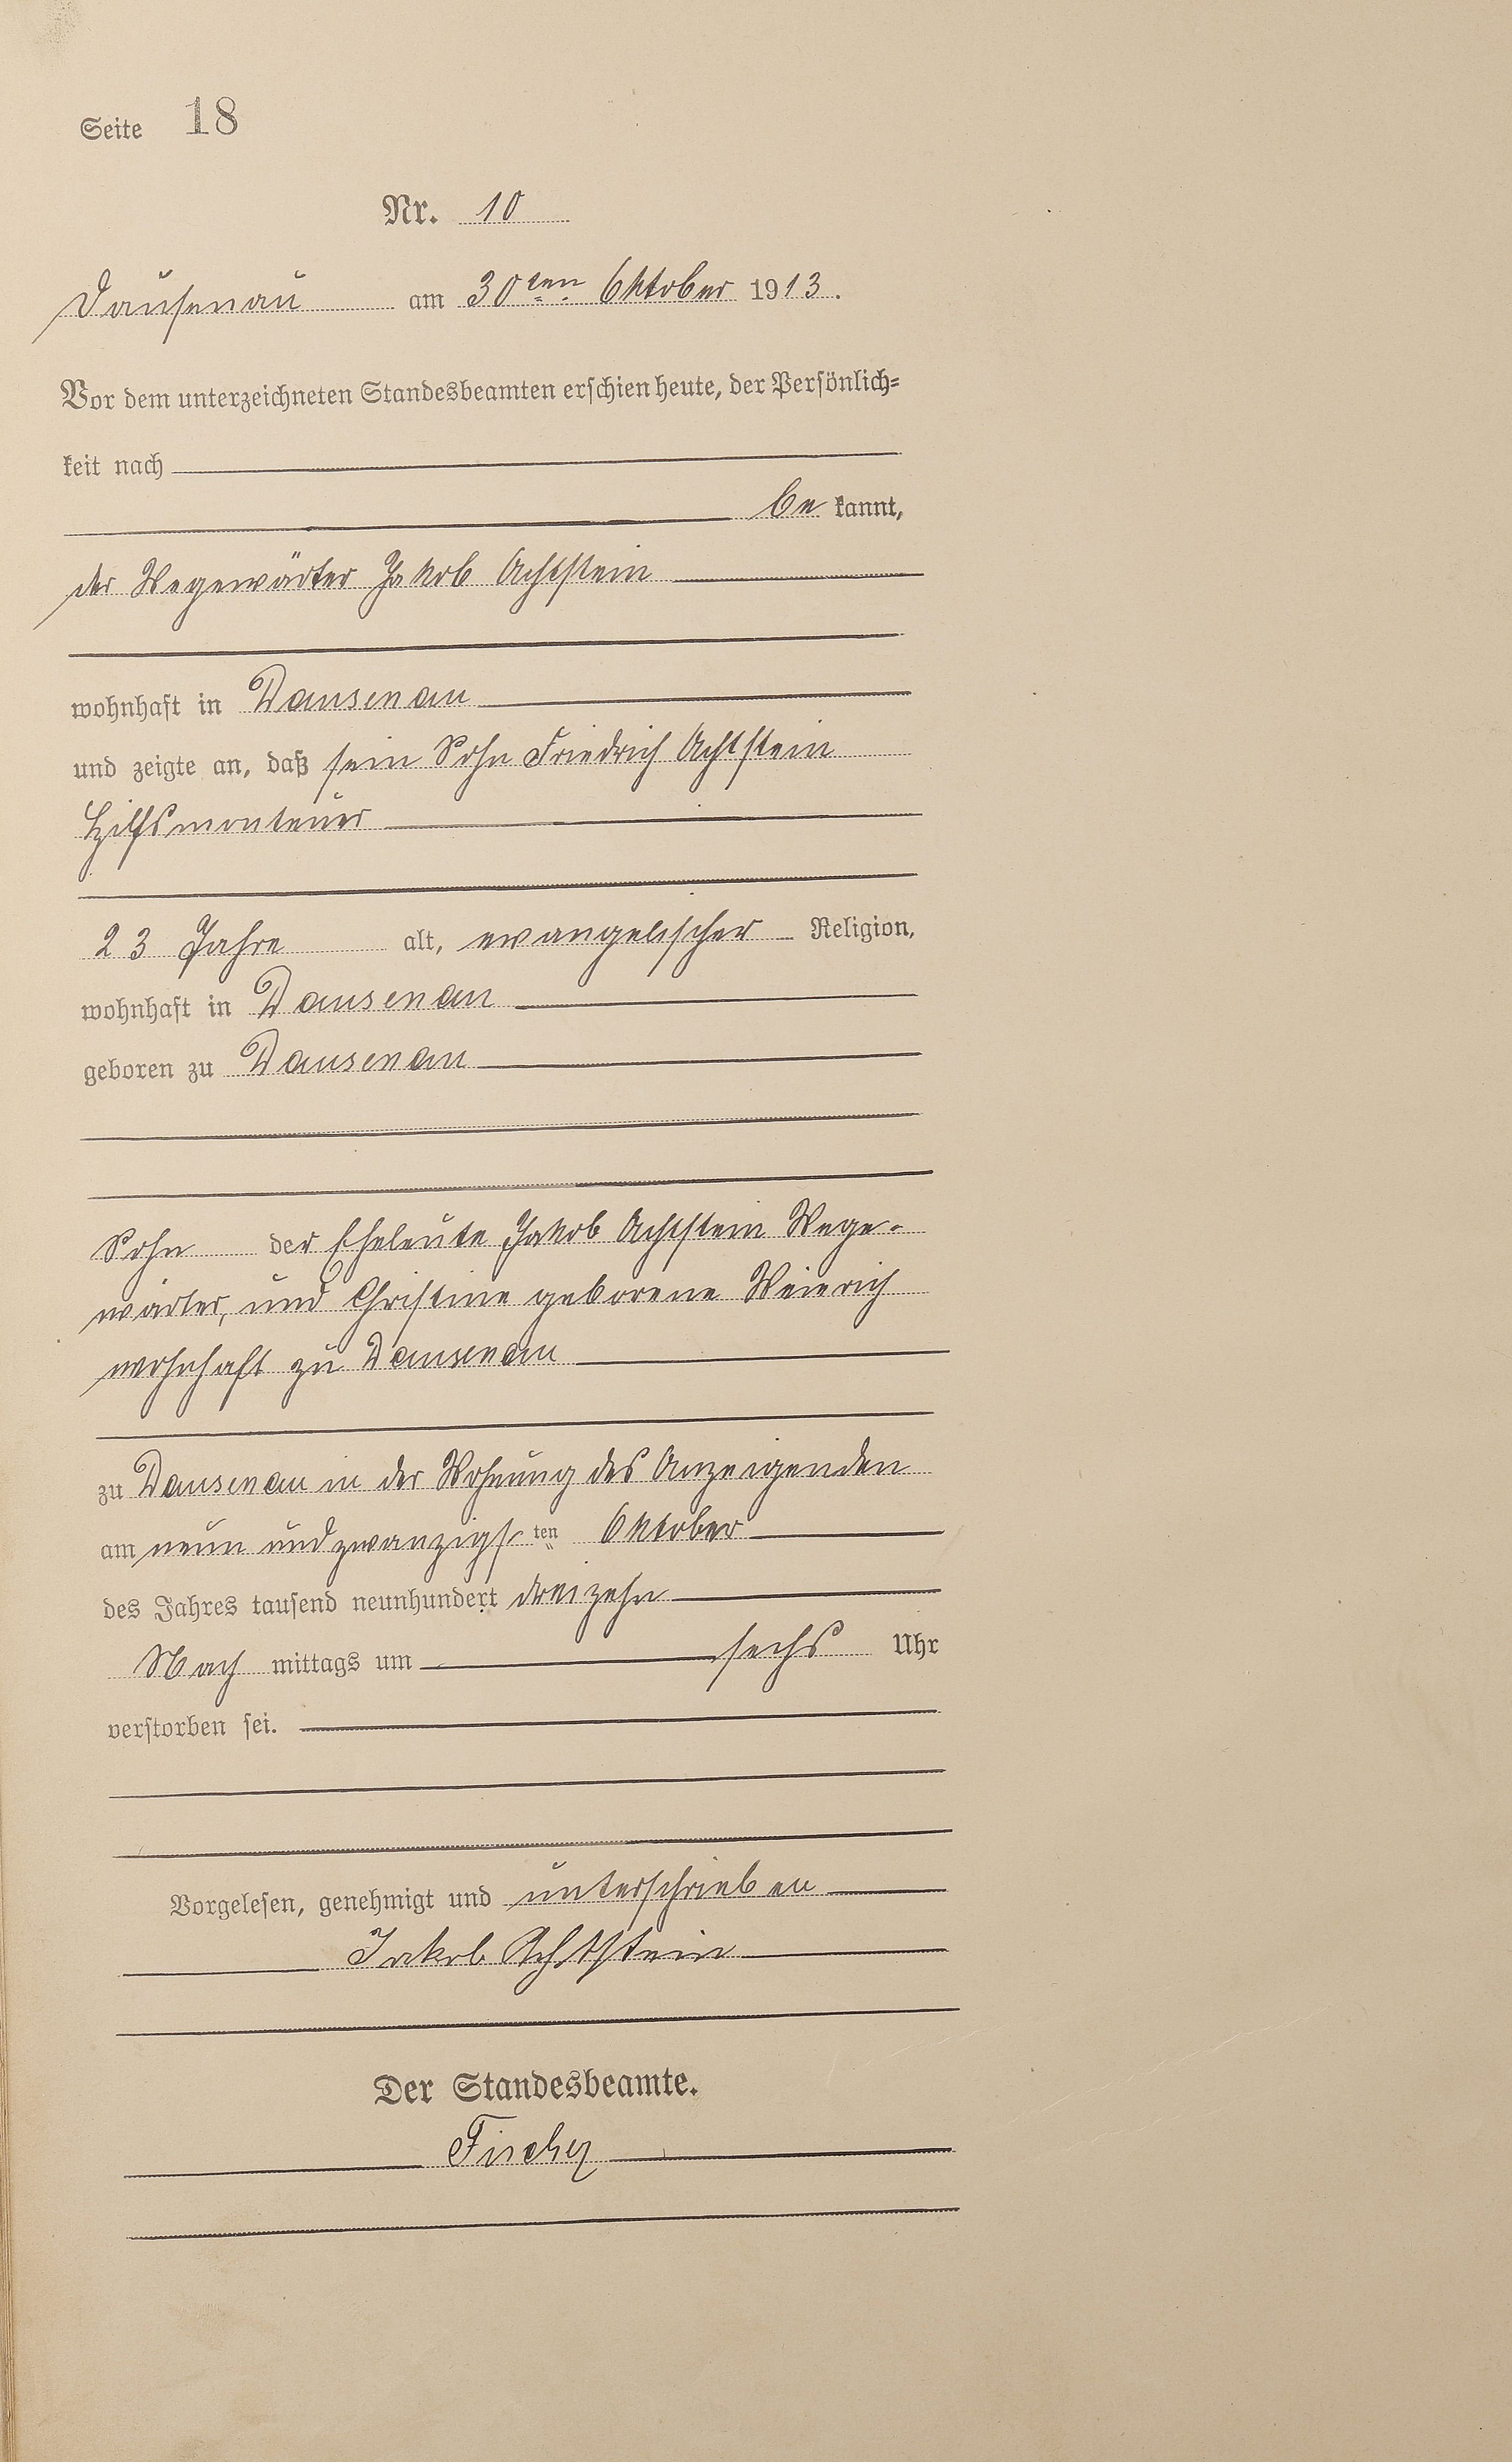 Seite 18
Nr. 10
Dausenau am 30ten Oktober 1913.
Vor dem unterzeichneten Standesbeamten erschien heute, der Persönlich=
keit nach
be kannt,
der Wegewärter Jakob Achtstein
wohnhaft in Dausenau
und zeigte an, daß sein Sohn Friedrich Achtstein
Hilfsmonteur
23 Jahre alt, evangelischer Religion,
wohnhaft in Dausenau
geboren zu Dausenau
Sohn der Eheleute Jakob Achtstein Wege-
wärter, und Christine geborene Weierich
wohnhaft zu Dausenau
zu Dausenau in der Wohnung des Anzeigenden
am neun und zwanzigsten Oktober
des Jahres tausend neunhundert dreizehn
Nach mittags um sechs Uhr
verstorben sei.
Vorgelesen, genehmigt und unterschrieben
Jakob Achtstein
Der Standesbeamte.
Fischer